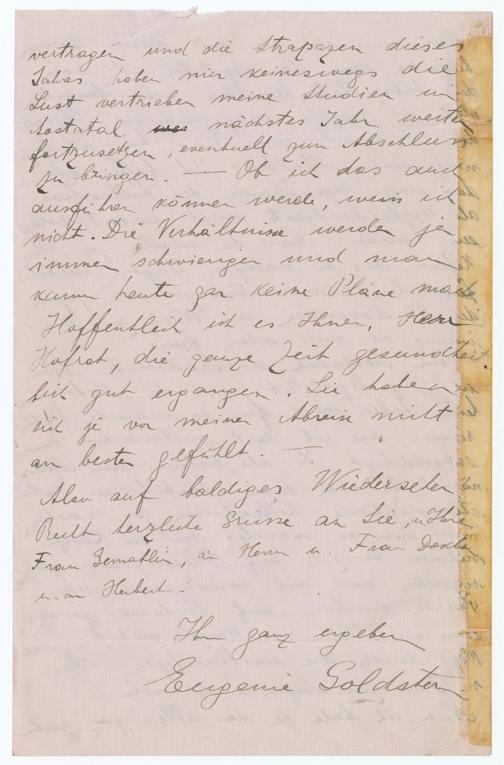 vertragen und die Strapazen dieses
Jahres haben mir keineswegs die
Lust vertrieben meine Studien im
Aostatal nächstes Jahr weiter
fortzusetzen, eventuell zum Abschluss
zu bringen. — Ob ich das auch
ausführen können werde, weiss ich
nicht. Die Verhältnisse werden ja
immer schwieriger und man
kann heute gar keine Pläne mach
Hoffentlich ist es Ihnen, Herr
Hofrat, die ganze Zeit gesundheit
lich gut ergangen. Sie haben
sich ja vor meiner Abreise nicht
am besten gefühlt. —
Also auf baldiges Wiedersehen
Recht herzliche Grüsse an Sie, u. Ihre
Frau Gemahlin, an Herrn u. Frau
u. an Herbert!
Ihr ganz ergeben
Eugenie Goldstern